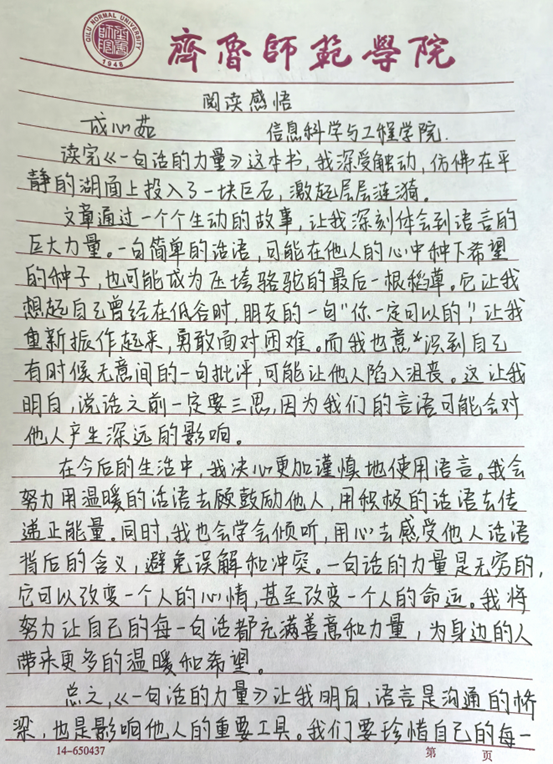 QILU NORMAL UNIVERSITY
1948
齊魯師範學院
阅读感悟
成心茹 信息科学与工程学院.
读完《一句话的力量》这本书,我深受触动,仿佛在平
静的湖面上投入了一块巨石,激起层层涟漪。
文章通过一个个生动的故事,让我深刻体会到语言的
巨大力量。一句简单的话语,可能在他人的心中种下希望
的种子,也可能成为压垮骆驼的最后一根稻草。它让我
想起自己曾经在低谷时,朋友的一句"你一定可以的",让我
重新振作起来,勇敢面对困难。而我也意识到自己
有时候无意间的一句批评,可能让他人陷入沮丧。这让我
明白,说话之前一定要三思,因为我们的言语可能会对
他人产生深远的影响。
在今后的生活中,我决心更加谨慎地使用语言。我会
努力用温暖的话语去顾鼓励他人,用积极的话语去传
递正能量。同时,我也会学会倾听,用心去感受他人话语
背后的含义,避免误解和冲突。一句话的力量是无穷的,
它可以改变一个人的心情,甚至改变一个人的命运。我将
努力让自己的每一句话都充满善意和力量,为身边的人
带来更多的温暖和希望。
总之,《一句话的力量》让我明白,语言是沟通的桥
梁,也是影响他人的重要工具。我们要珍惜自己的每一
14-650437 第 页